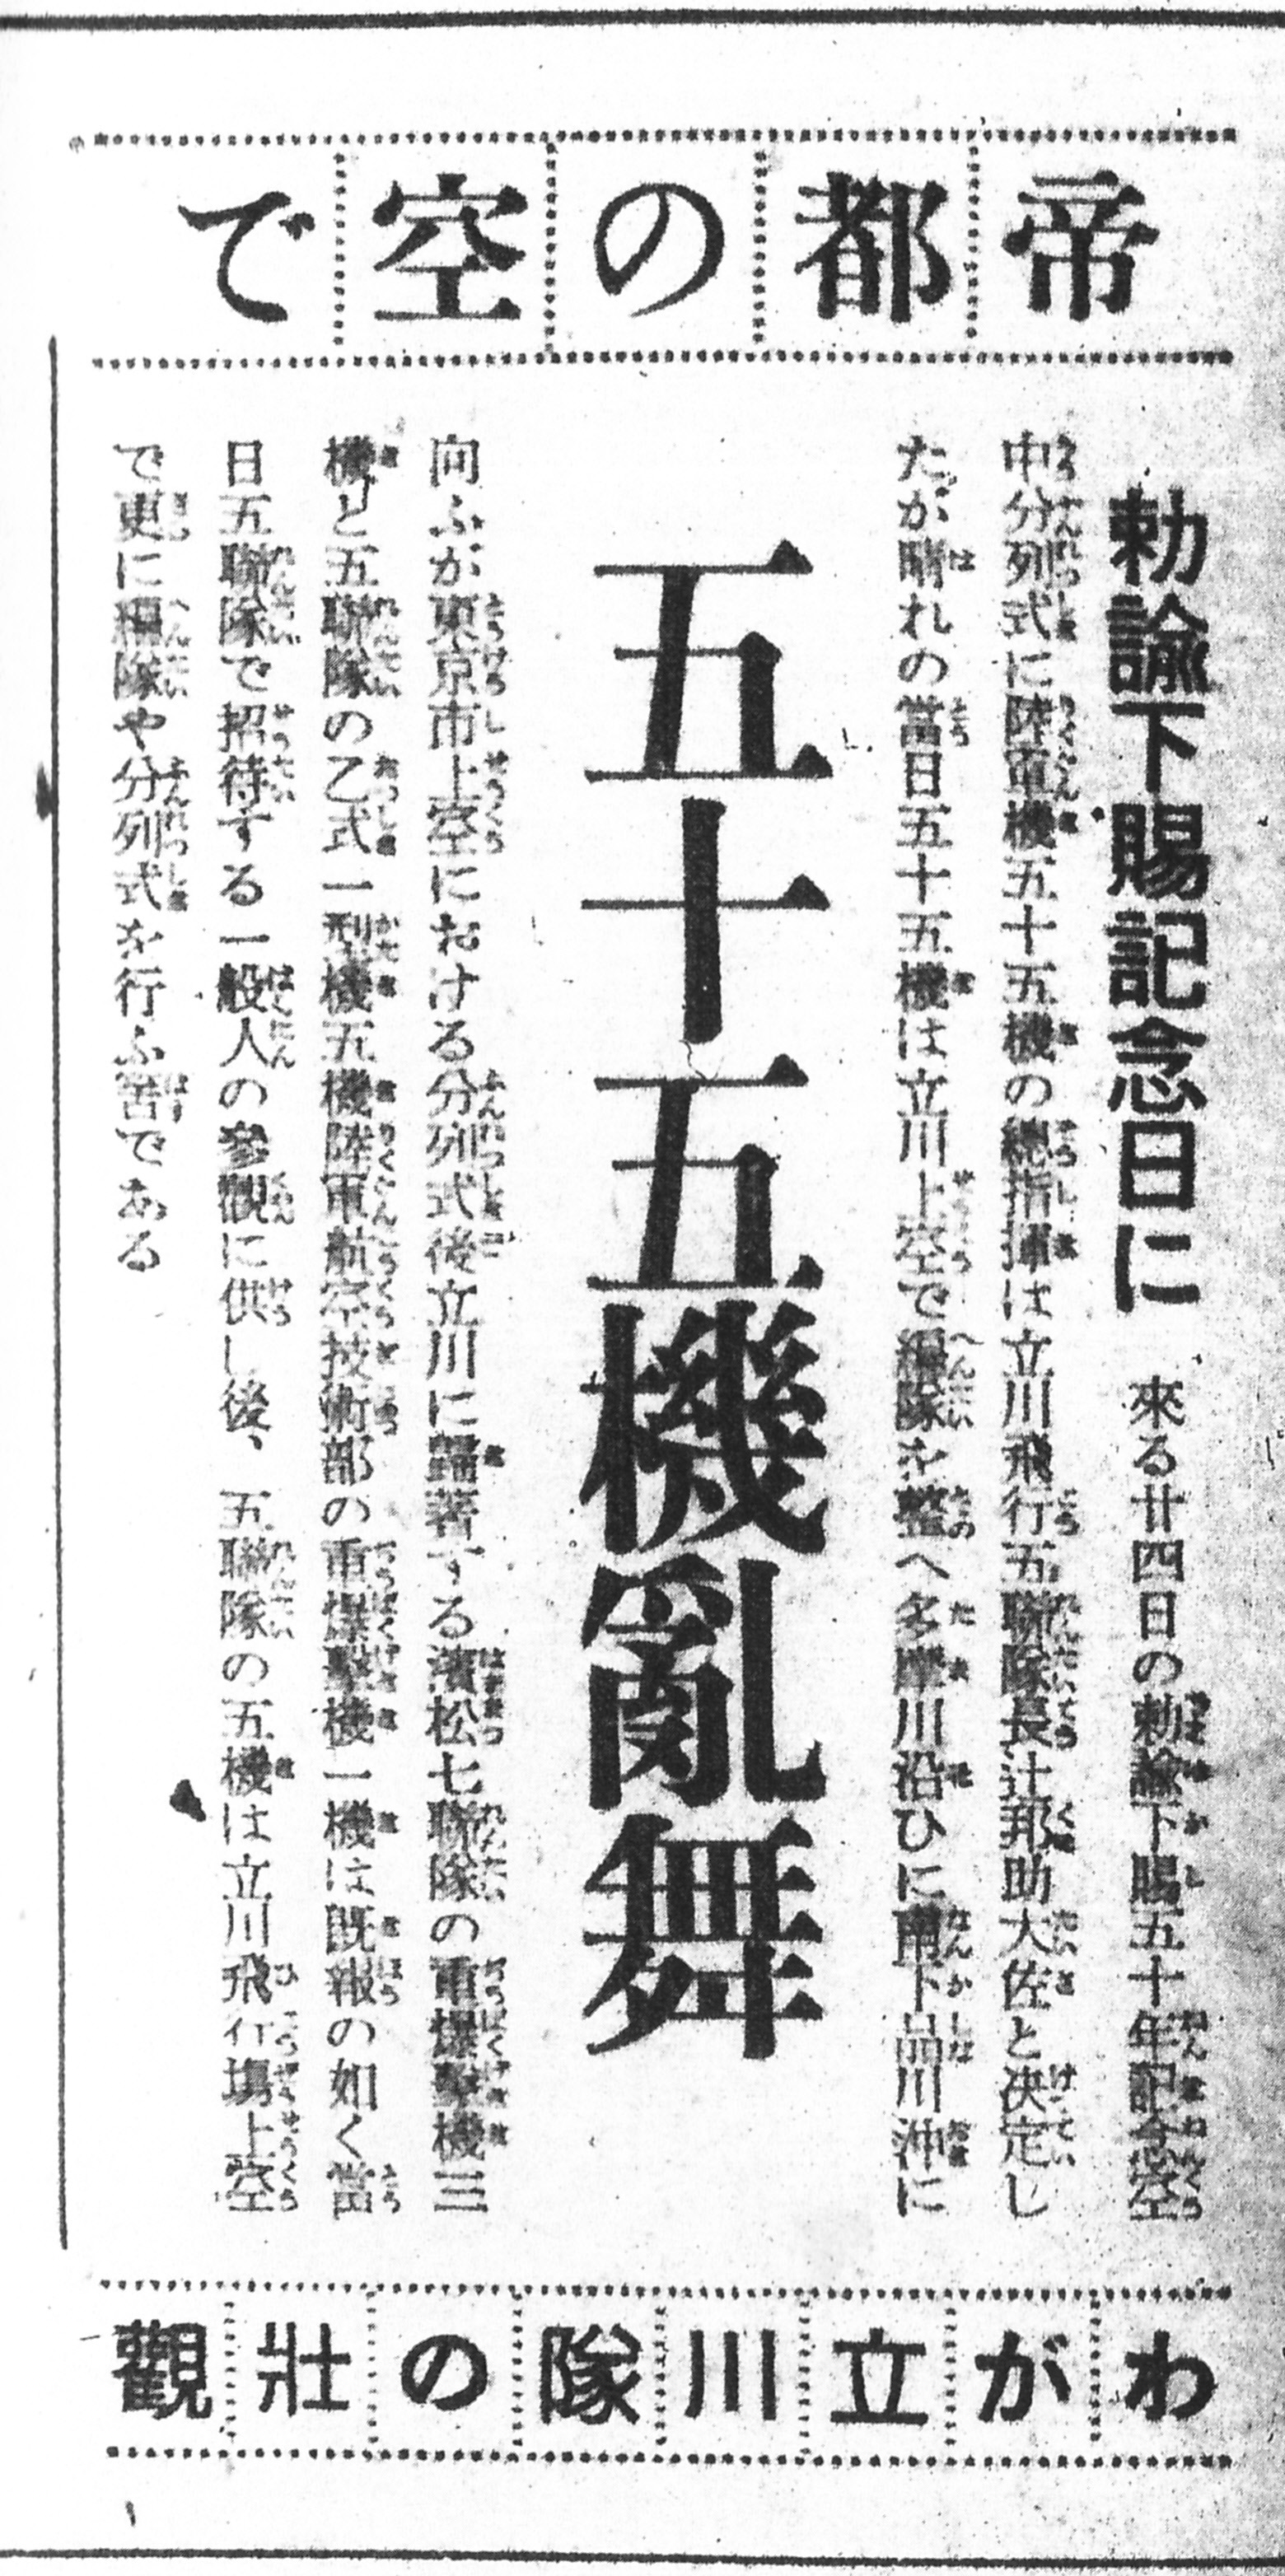 帝都の空で
勅諭下賜記念日に
來る廿四日の勅諭下賜五十年記念空
中分列式に陸軍機五十五機の總指揮は立川飛行五聯隊長辻邦助大佐と決定し
たが晴れの當日五十五機は立川上空で編隊を整へ多摩川沿ひに南下品川沖に
五十五機亂舞
向ふが東京市上空における分列式後立川に歸著する濱松七聯隊の重爆擊機三
機と五聯隊の乙式一型機五機陸軍航空技術部の重爆擊機一機は既報の如く當
日五聯隊で招待する一般人の參觀に供し後、五聯隊の五機は立川飛行場上空
で更に編隊や分列式を行ふ筈である
わが立川隊の壯觀